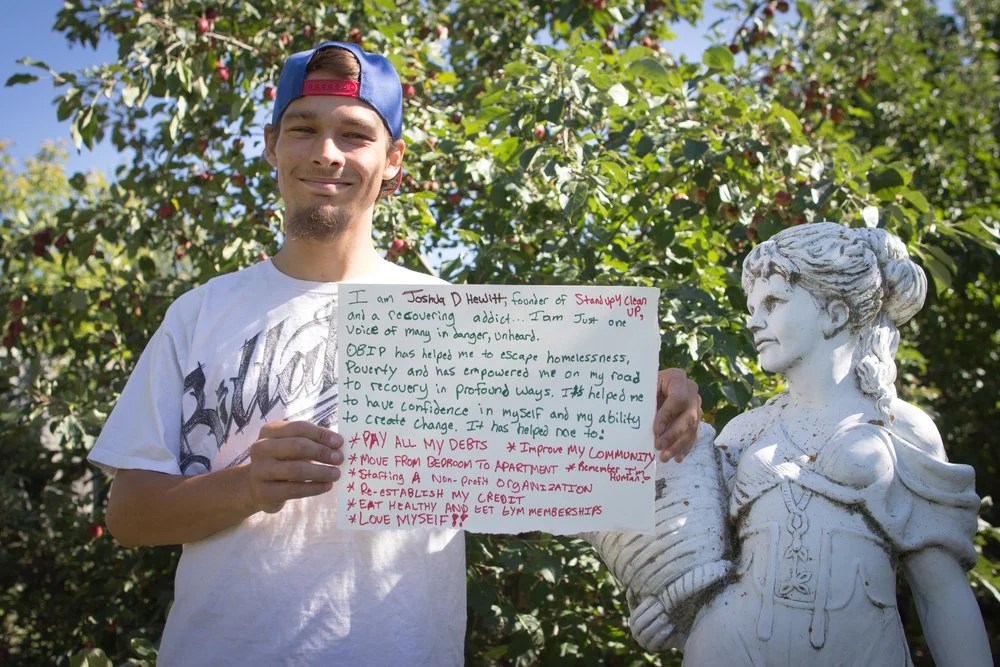 I am Joshua D Hewitt, founder of StandupY Clean UP,
and a recovering addict... I am Just one
voice of many in danger, unheard.
OBIP has helped me to escape homelessness,
Poverty and has empowered me on my road
to recovery in profound ways. It helped me
to have confidence in myself and my ability
to create change. It has helped me to:
*PAY ALL MY DEBTS *Improve MY COMMUNITY
*MOVE FROM BEDROOM TO APARTMENT *Remember I'm Human!
*Starting A Non-Profit ORGANIZATION
*Re-ESTABLISH MY CREDIT
*EAT HEALTHY AND GET GYM MEMBERSHIPS
*LOVE MYSELF!!